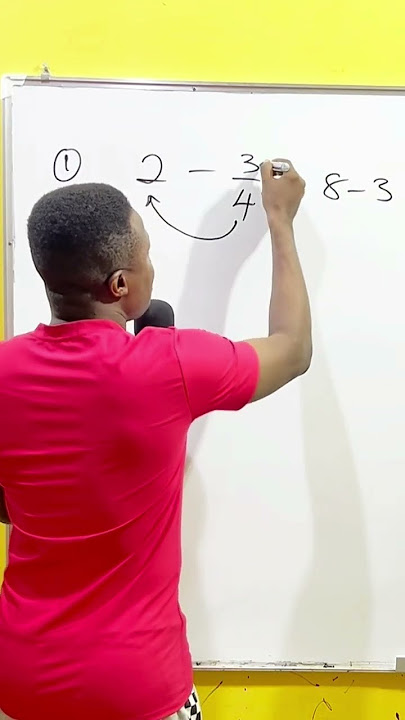 ① 2 - 3/4 8-3